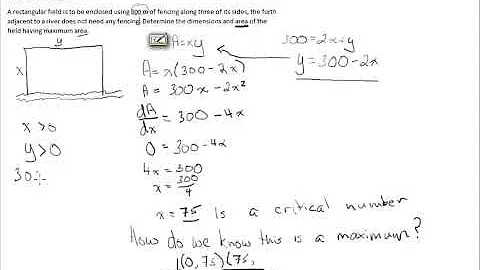 A rectangular field is to be enclosed using 300 m of fencing along three of its sides, the forth
adjacent to a river does not need any fencing. Determine the dimensions and area of the
field having maximum area.
y
x
x > 0
y > 0
30
A = xy
A = x(300 - 2x)
A = 300x - 2x²
dA/dx = 300 - 4x
0 = 300 - 4x
4x = 300
x = 300/4
x = 75 is a critical number
How do we know this is a maximum?
(0, 75) (75,
300 = 2x + y
y = 300 - 2x